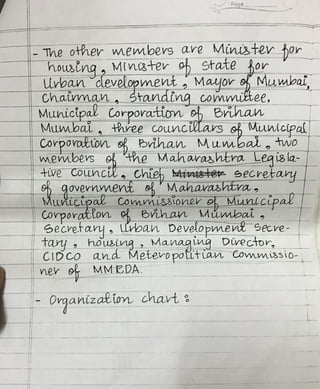 Page
- The other members are Minister for
housing, Minister of State for
Urban development, Mayor of Mumbai,
Chairman, Standing committee,
Municipal Corporation of Brihan
Mumbai, three councillars of Municipal
Corporation of Brihan Mumbai, two
members of the Maharashtra Legisla-
tive Council, Chief Minister Secretary
of government of Maharashtra,
Municipal Commissioner of Municipal
Corporation of Brihan Mumbai,
Secretary, Urban Development Secre-
tary, housing, Managing Director,
CIDCO and Meteropolitian Commissio-
ner of MMRDA.
- Organization chart :